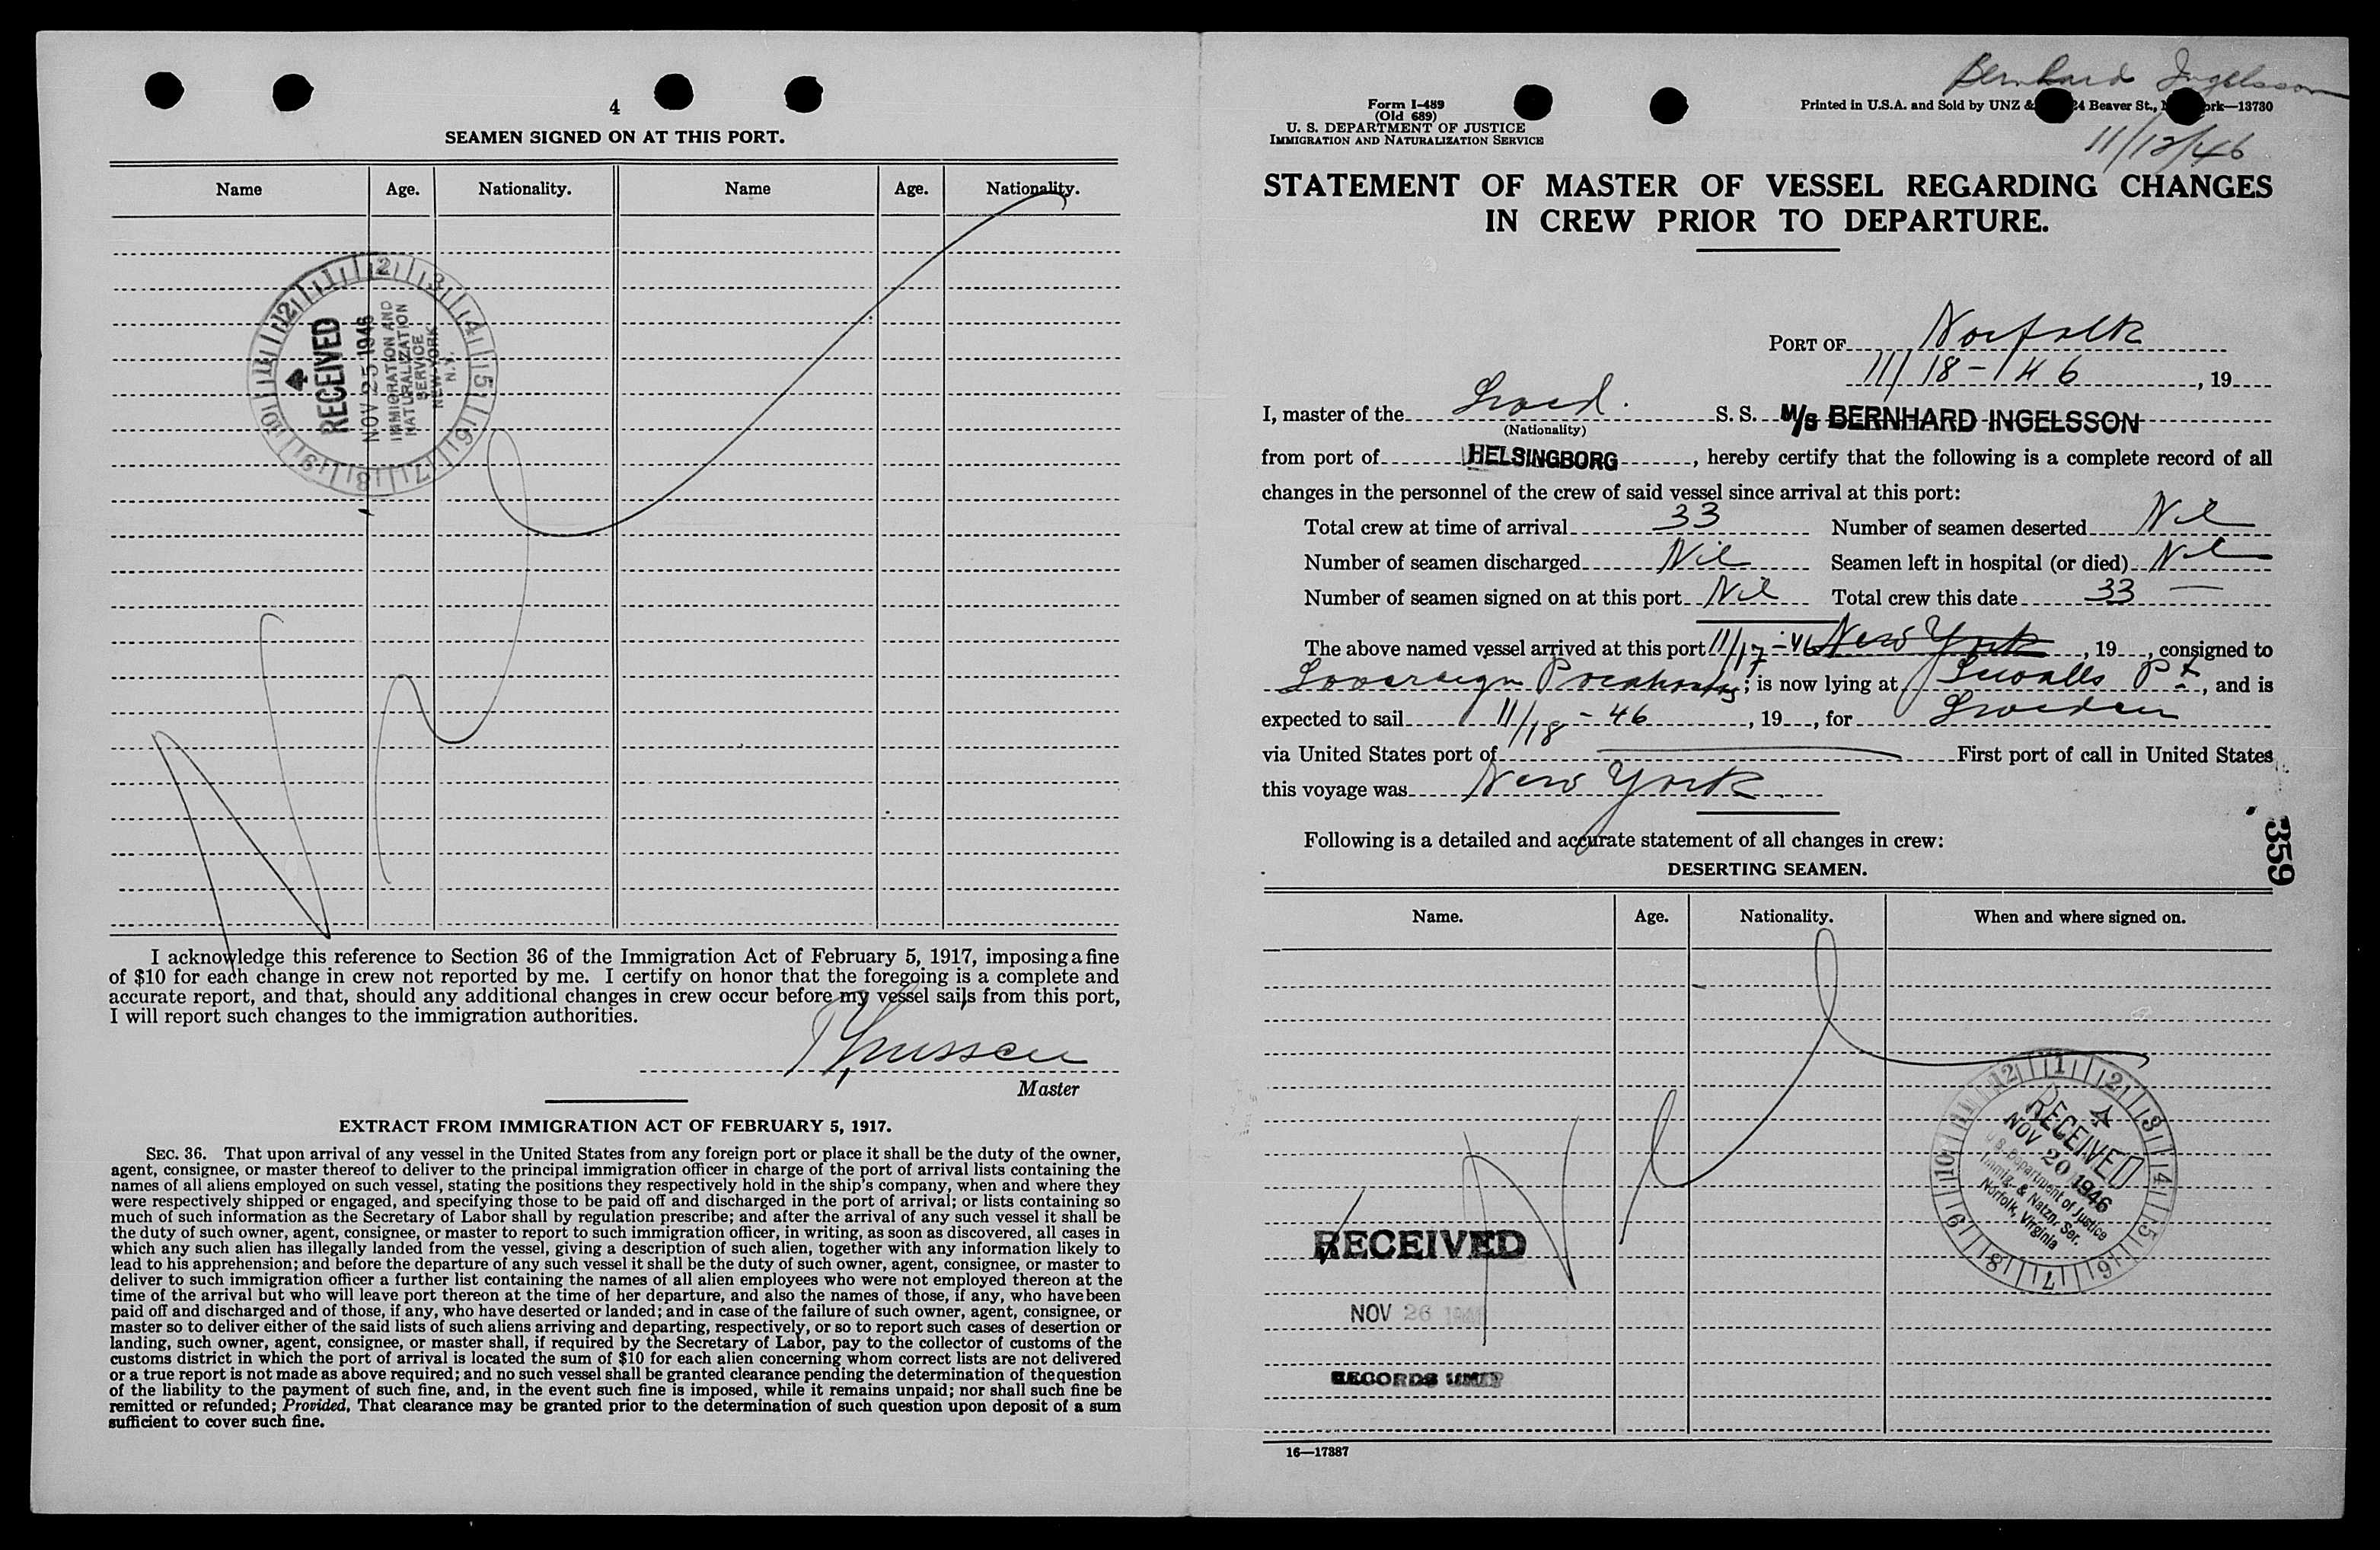 4
SEAMEN SIGNED ON AT THIS PORT.
Name Age. Nationality. Name Age. Nationality.
RECEIVED
NOV 25 1946
IMMIGRATION AND
NATURALIZATION
SERVICE
NEW YORK
N.Y.
Nil
I acknowledge this reference to Section 36 of the Immigration Act of February 5, 1917, imposing a fine
of $10 for each change in crew not reported by me. I certify on honor that the foregoing is a complete and
accurate report, and that, should any additional changes in crew occur before my vessel sails from this port,
I will report such changes to the immigration authorities.
Master
EXTRACT FROM IMMIGRATION ACT OF FEBRUARY 5, 1917.
SEC. 36. That upon arrival of any vessel in the United States from any foreign port or place it shall be the duty of the owner,
agent, consignee, or master thereof to deliver to the principal immigration officer in charge of the port of arrival lists containing the
names of all aliens employed on such vessel, stating the positions they respectively hold in the ship's company, when and where they
were respectively shipped or engaged, and specifying those to be paid off and discharged in the port of arrival; or lists containing so
much of such information as the Secretary of Labor shall by regulation prescribe; and after the arrival of any such vessel it shall be
the duty of such owner, agent, consignee, or master to report to such immigration officer, in writing, as soon as discovered, all cases in
which any such alien has illegally landed from the vessel, giving a description of such alien, together with any information likely to
lead to his apprehension; and before the departure of any such vessel it shall be the duty of such owner, agent, consignee, or master to
deliver to such immigration officer a further list containing the names of all alien employees who were not employed thereon at the
time of the arrival but who will leave port thereon at the time of her departure, and also the names of those, if any, who have been
paid off and discharged and of those, if any, who have deserted or landed; and in case of the failure of such owner, agent, consignee, or
master so to deliver either of the said lists of such aliens arriving and departing, respectively, or so to report such cases of desertion or
landing, such owner, agent, consignee, or master shall, if required by the Secretary of Labor, pay to the collector of customs of the
customs district in which the port of arrival is located the sum of $10 for each alien concerning whom correct lists are not delivered
or a true report is not made as above required; and no such vessel shall be granted clearance pending the determination of the question
of the liability to the payment of such fine, and, in the event such fine is imposed, while it remains unpaid; nor shall such fine be
remitted or refunded; Provided, That clearance may be granted prior to the determination of such question upon deposit of a sum
sufficient to cover such fine.
Bernhard Ingelsson
Form I-489
(Old 689)
U. S. DEPARTMENT OF JUSTICE
IMMIGRATION AND NATURALIZATION SERVICE
Printed in U.S.A. and Sold by UNZ & 24 Beaver St., ork—13730
11/12/46
STATEMENT OF MASTER OF VESSEL REGARDING CHANGES
IN CREW PRIOR TO DEPARTURE.
PORT OF Norfolk
11/18-46, 19
I, master of the Swed. S. S. M/S BERNHARD INGELSSON
(Nationality)
from port of HELSINGBORG, hereby certify that the following is a complete record of all
changes in the personnel of the crew of said vessel since arrival at this port:
Total crew at time of arrival 33 Number of seamen deserted Nil
Number of seamen discharged Nil Seamen left in hospital (or died) Nil
Number of seamen signed on at this port Nil Total crew this date 33
The above named vessel arrived at this port 11/17-46 New York, 19, consigned to
Sovereign Pocahontas; is now lying at Sewalls Pt, and is
expected to sail 11/18-46, 19, for Sweden
via United States port of First port of call in United States
this voyage was New York.
Following is a detailed and accurate statement of all changes in crew:
DESERTING SEAMEN.
359
Name. Age. Nationality. When and where signed on.
Nil
RECEIVED
NOV 20 1946
U.S. Department of Justice
Immig. & Natzn. Ser.
Norfolk, Virginia
RECEIVED
NOV 26 1946
RECORDS UNIT
16—17387